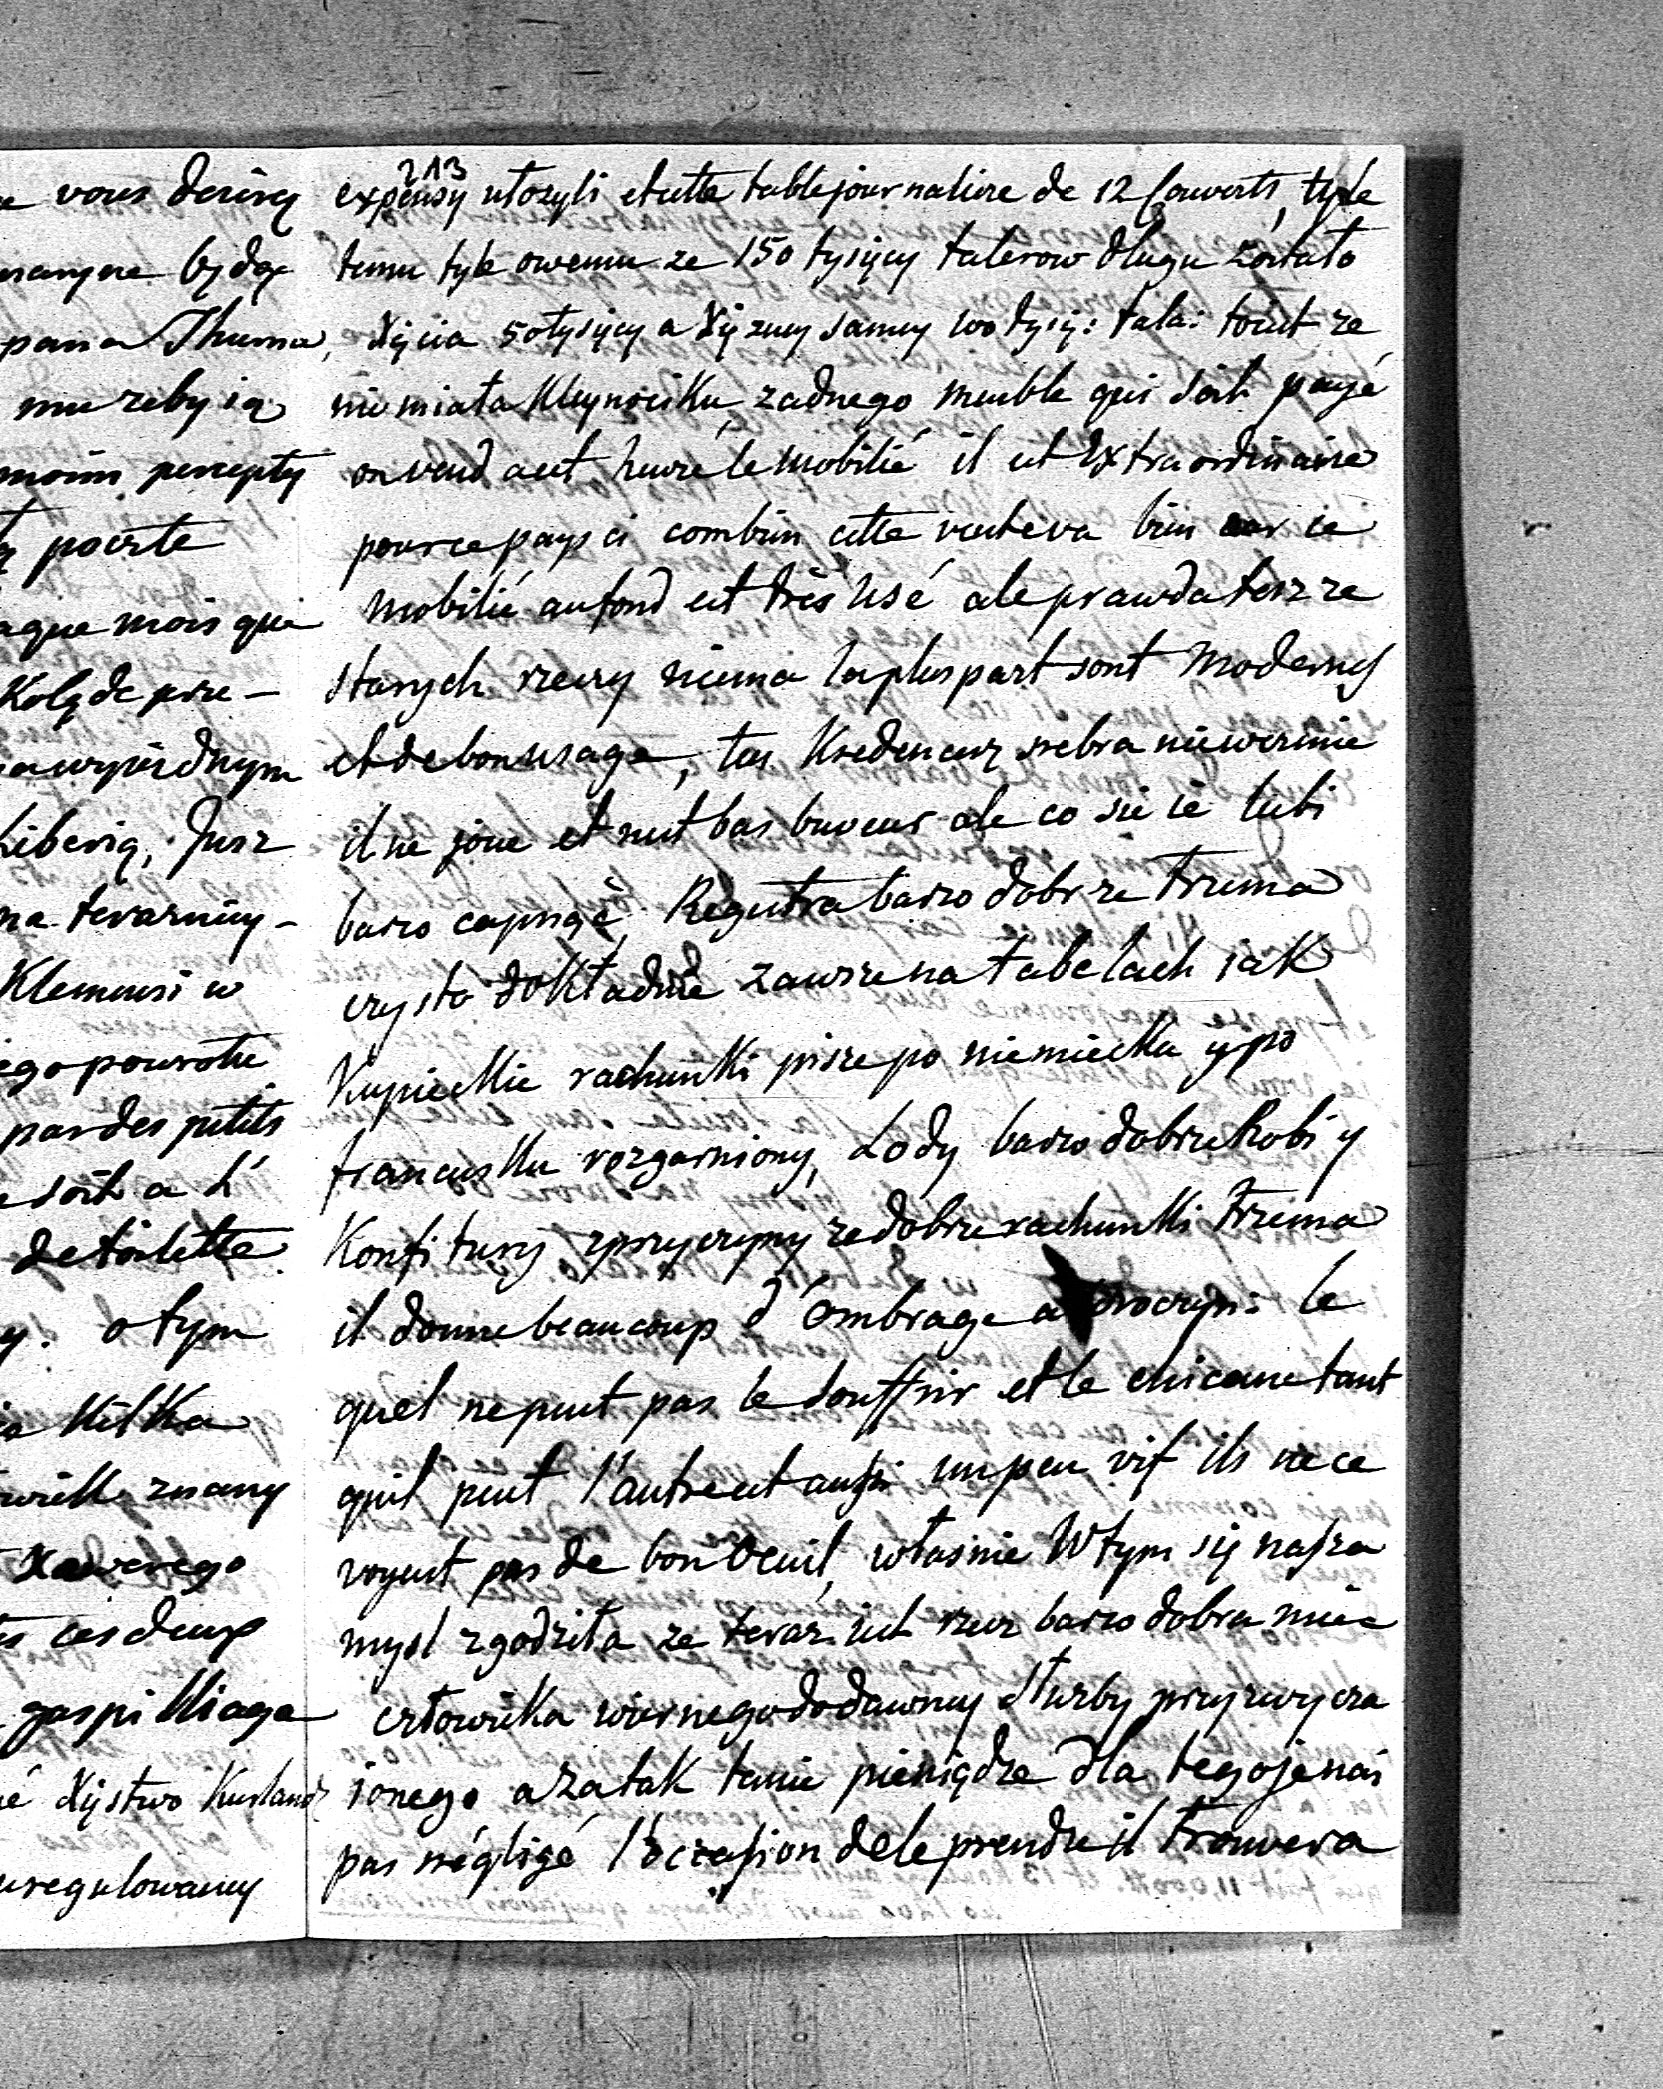 e vous derivę
maryne będąc
pana Thuma,
mu zeby ią
moim percepty
poczte
aque mois qui
Kolęde prze-
awyiezdnym
Liberią, Jusz
na tevarnicy-
Klemensi w
ego powrotu
par des petits
soit a L'
de toilette
y. o tym
ia Kilka
wielk znany
Xawerego
ces deux
gaspilliage
é Xięstwo Kurland
uregulowany
213
expensy ułozyli et cette table journaliere de 12 Couverts, tyle
temu tyle owemu ze 150 tysięcy talerow długu został‌o
Xięcia 50 tysięcy a Xięzney samey 100 tysię: tala: toiest ze
nie miała kleynociku, zadnego meuble qui soit payé
on vend a cet heure le mobilié il est Extraordinaire
pour ce pays ci combien cette vente va bien car ce
mobilié au fond est très usé ale prawda tesz ze
starych rzeczy niema la pluspart sont moderny
et de bon usage, ten Kredencerz srebra nie wezmie
il ne joue et n'est bas buveur ale co sie ie lubi
barzo capngć, Regestra barzo dobrze trzema
czysto dokładnie zawsze na tabelach iak
Kupieckie rachunki pisze po niemiecku y po
francusku rozgarniony, Lody barzo dobrze Robi y
Konfitury, zprzyczyny ze dobrze rachunki trzema
il donne beaucoup d'ombrage a le
quel ne peut pas le souffrir et le chicane tant
quil peut l'autre est aussi un peu vif ils ne ce
voyent pas de bon Oeuil, własnie W tym się nasza
mysl zgodziła ze teraz iest rzecz barzo dobra miec
człowieka wiernego do dawney słuzby przyzwycza
ionego a za tak tanie pieniądze dla tego je nai
pas négligé l'occasion de le prendre il trouvera